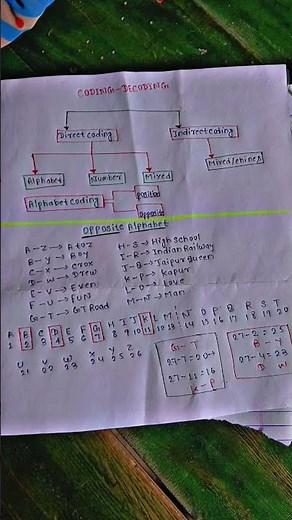 CODING-DECODING
Direct coding
Indirect coding
Alphabet
Number
Mixed
Mixed/chines
Alphabet coding
Position
Opposite
OPPOSITE ALPHABET
A-Z → A to Z
H-S → High School
B-Y → Boy
I-R → Indian Railway
C-X → Crox
J-Q → Jaipur Queen
D-W → Drew
K-P → Kapur
E-V → Even
L-O → Love
F-U → FUN
M-N → Man
G-T → GT Road
A B C D E F G H I J K L M N O P Q R S T
1 2 3 4 5 6 7 8 9 10 11 12 13 14 15 16 17 18 19 20
U V W X Y Z
21 22 23 24 25 26
G - T
27-7=20→
27-11=16
K-P
27-2=25
B - Y
27-4=23
D W